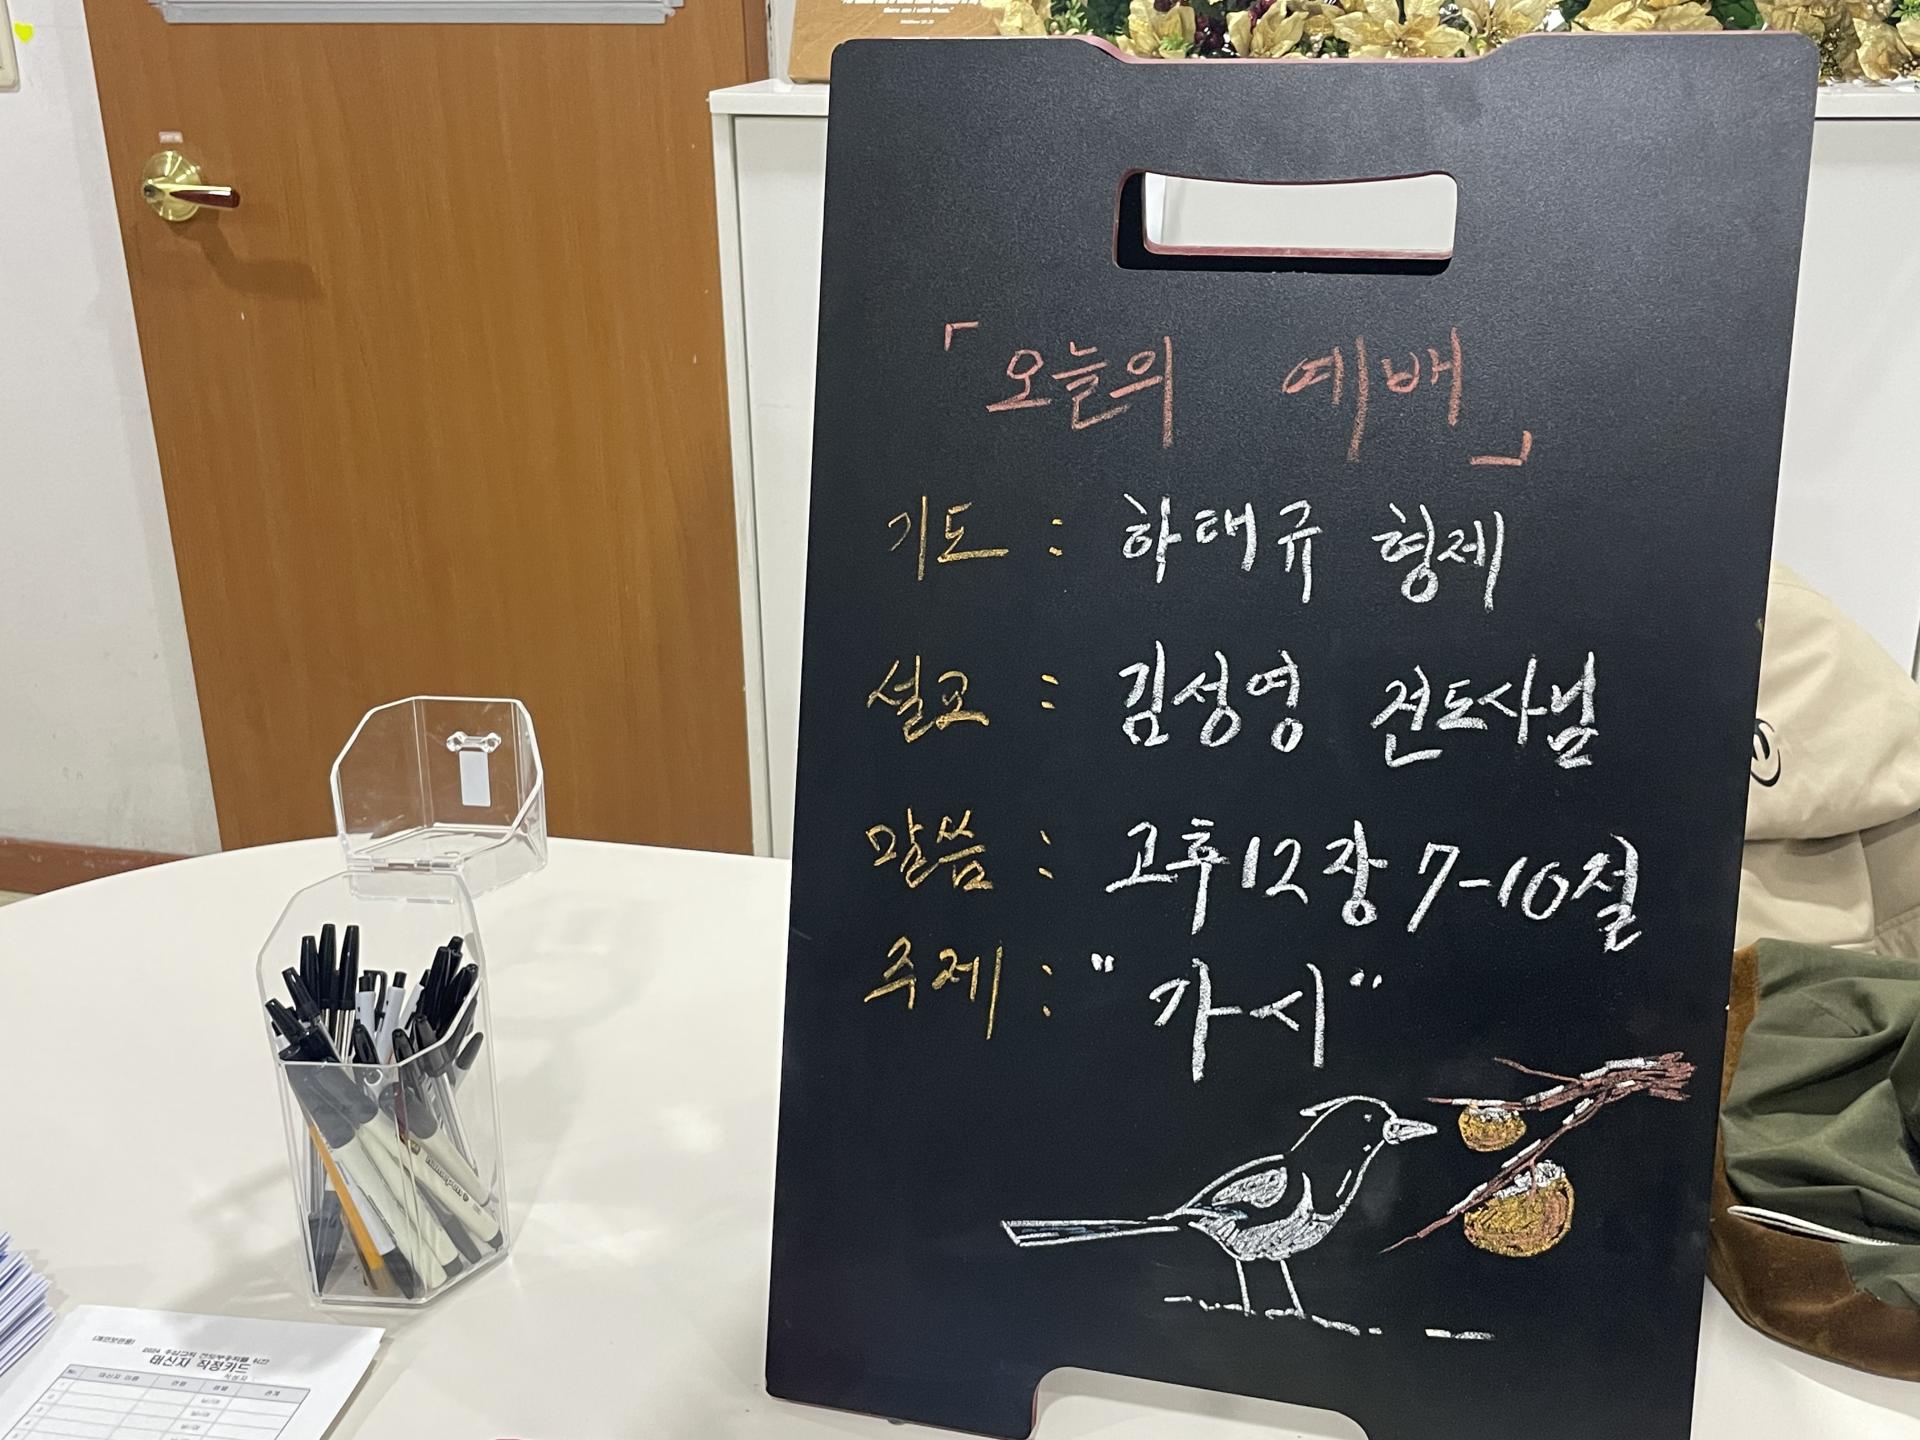 there am I with them."
「오늘의 예배」
기도 : 하태규 형제
설교 : 김성영 전도사님
말씀 : 고후12장 7-10절
주제 : "가시"
태신자 작정카드